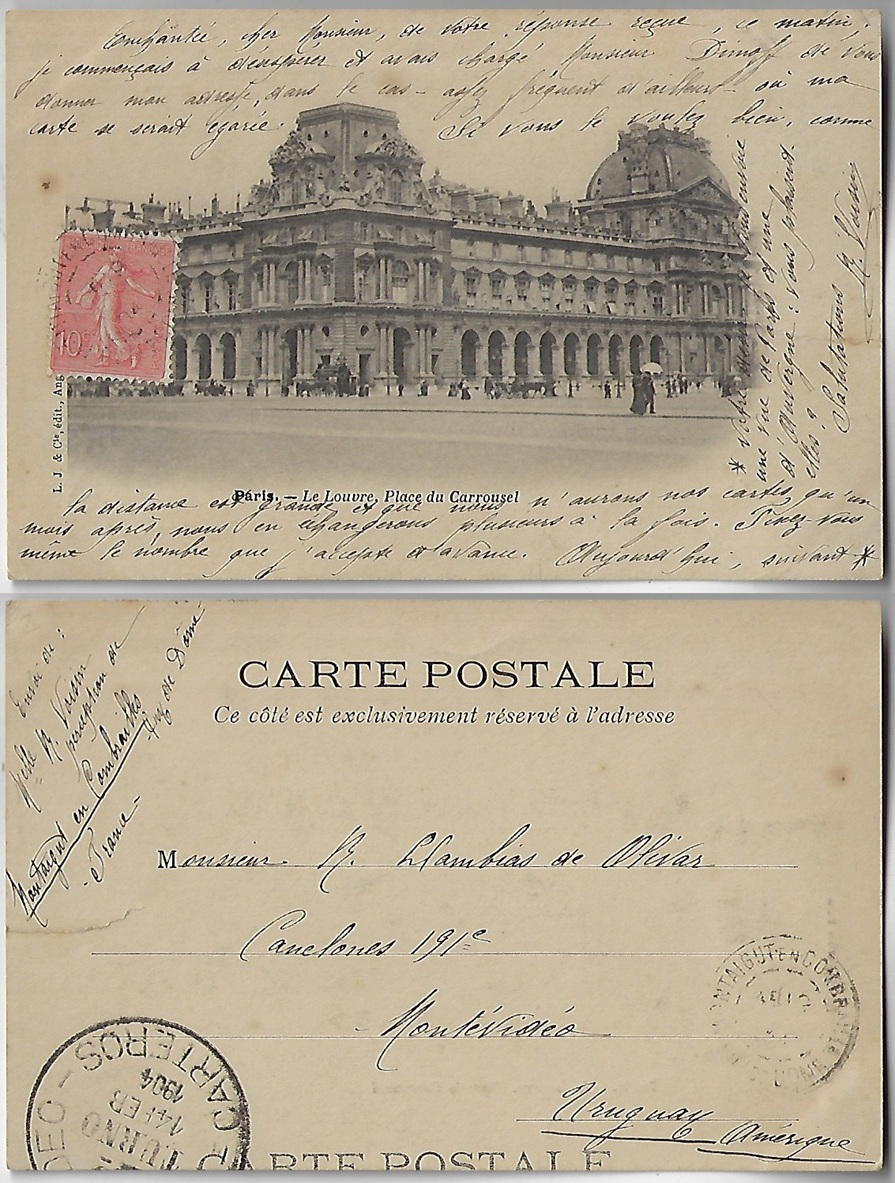 Enchantée, cher Monsieur, de votre réponse reçue, ce matin;
je commençais à désespérer et avais chargé Monsieur Dimoff de vous
donner mon adresse, dans le cas - assez fréquent d'ailleurs - où ma
carte se serait égarée. Si vous le voulez bien, comme
la distance est grande et que nous n'aurons nos cartes qu'un
mois après, nous en échangerons plusieurs à la fois. Fixez-vous
même le nombre que j'accepte d'avance. Aujourd'hui, suivant *
* votre je vous envoie
une vue de Paris et une
d'Auvergne: vous plairont
elles?
Salutations R. Voisin
10
L. J. & Cie, édit., Ang
Paris. — Le Louvre, Place du Carrousel
CARTE POSTALE
Ce côté est exclusivement réservé à l'adresse
Envoi de:
Melle R. Voisin
perception de
Montaigut en Combrailles
Puy de Dôme
- France -
Monsieur R. Llambias de Olivar
Canelones 191c
Montévidéo
Uruguay
Amérique
MONTAIGUT EN COMBRAILLE
DEO - CARTEROS
TURNO
14 FER
1904
CARTE POSTALE